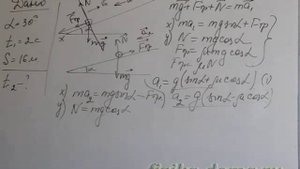 Дано
α=30°
t₁=2c
S=16м
t₂-?
N
Fтр
mg
x
α
mg+Fтр+N=ma₁
x) ma₁=mgsinα+Fтр
y) N=mgcosα
Fтр=μmgcosα
Fтр=μN
a₁=g(sinα+μcosα) (1)
x) ma₂=mgsinα-Fтр
a₂=g(sinα-μcosα)
y) N=mgcosα